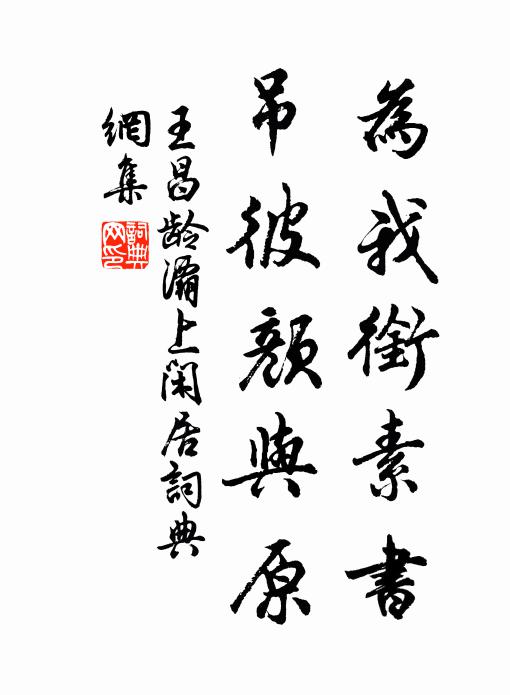 為我銜素書
吊彼顏與原
王昌齡灞上閑居詞典
網集
詞典
網印